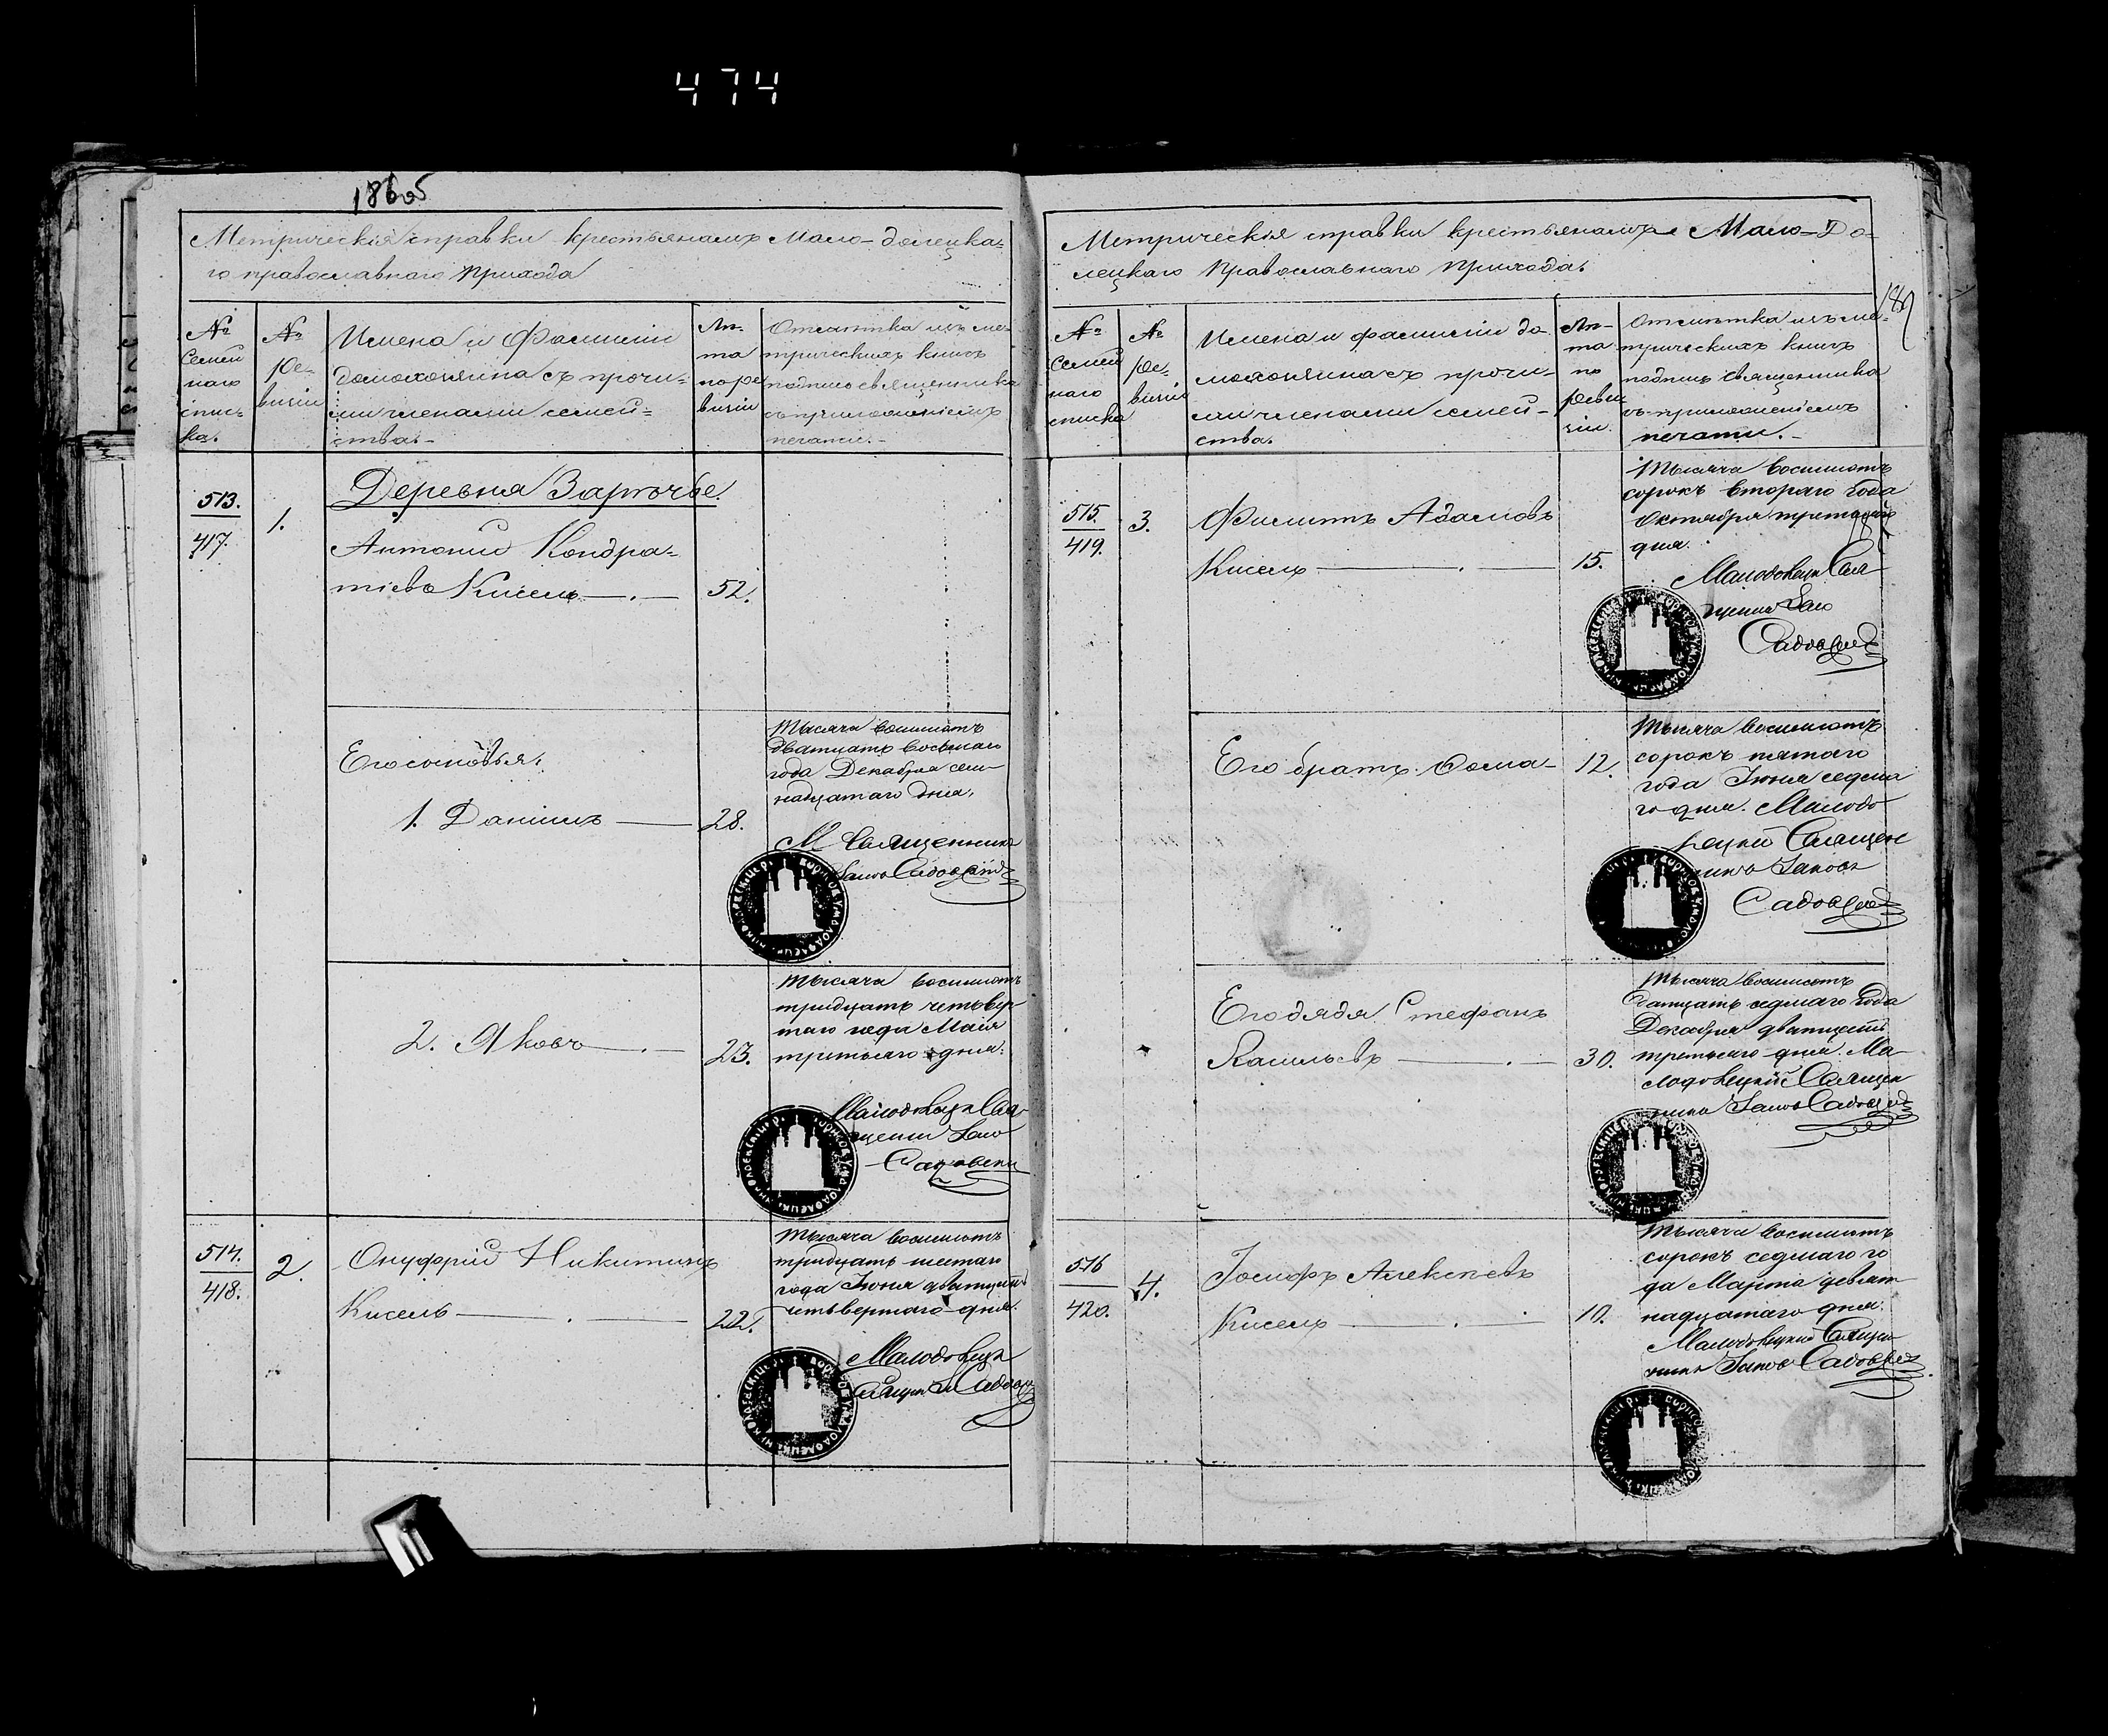 474
1865
Метрическія справки крестьянамъ Мало-долецка=
го православнаго прихода
№ Семей наго спис- ка.
№ Ре- визіи
Имена и Фамиліи
домохозяина съ прочи-
ми членами семей=
ства.-
Лѣ- та по ре визіи
Отмѣтка изъ ме-
трическихъ книгъ
подпись священника
съ приложеніемъ
печати.-
513.
417.
1.
Деревня Зарѣчье.
Антоній Кондра-
тьевъ Кисель
52.
Его сыновья:
1. Даніилъ
28.
Тысяча восимсотъ
двацать восьмаго
года Декабря сем-
надцатаго дня.
М Священникъ
2. Яковъ
23.
Тысяча восимсотъ
тридцать четьвер-
таго года Маія
третьяго дня.
514.
418.
2.
Онуфрій Никитинъ
Кисель
22.
Тысяча восимсотъ
тридцать шестаго
года Іюня дватцать
четьвертаго дня.
Метрическія справки крестьянамъ Мало-До=
лецкаго Православнаго Прихода.
№ Семей наго списка
№ Ре- визіи
Имена и фамиліи до-
мохозяина съ прочи-
ми членами семей-
ства.
Лѣ- та по Реви- зіи.
Отмѣтка изъ ме-
трическихъ книгъ
подпись священника
съ приложеніемъ
печати.-
515.
419.
3.
Филипъ Адамовъ
Кисель
15.
Тысяча восимсотъ
сорокъ втораго года
Октября
дня.
Его братъ Фома-
12.
Тысяча восимсотъ
сорокъ пятаго
года Іюня седма
го дня. Малодо
лецкій Священ
никъ Іаковъ
Его дядя Стефанъ
Васильевъ
30.
Тысяча восимсотъ
двацать седмаго года
Декабря дватцать
третьяго дня. Ма-
лодолецкій Священ
никъ
516
420.
4.
Іосифъ Алексѣевъ
Кисель
10.
Тысяча восимсотъ
сорокъ седмаго го
да Марта девят-
надцатаго дня.
Малодолецкій Священ-
никъ Іаковъ